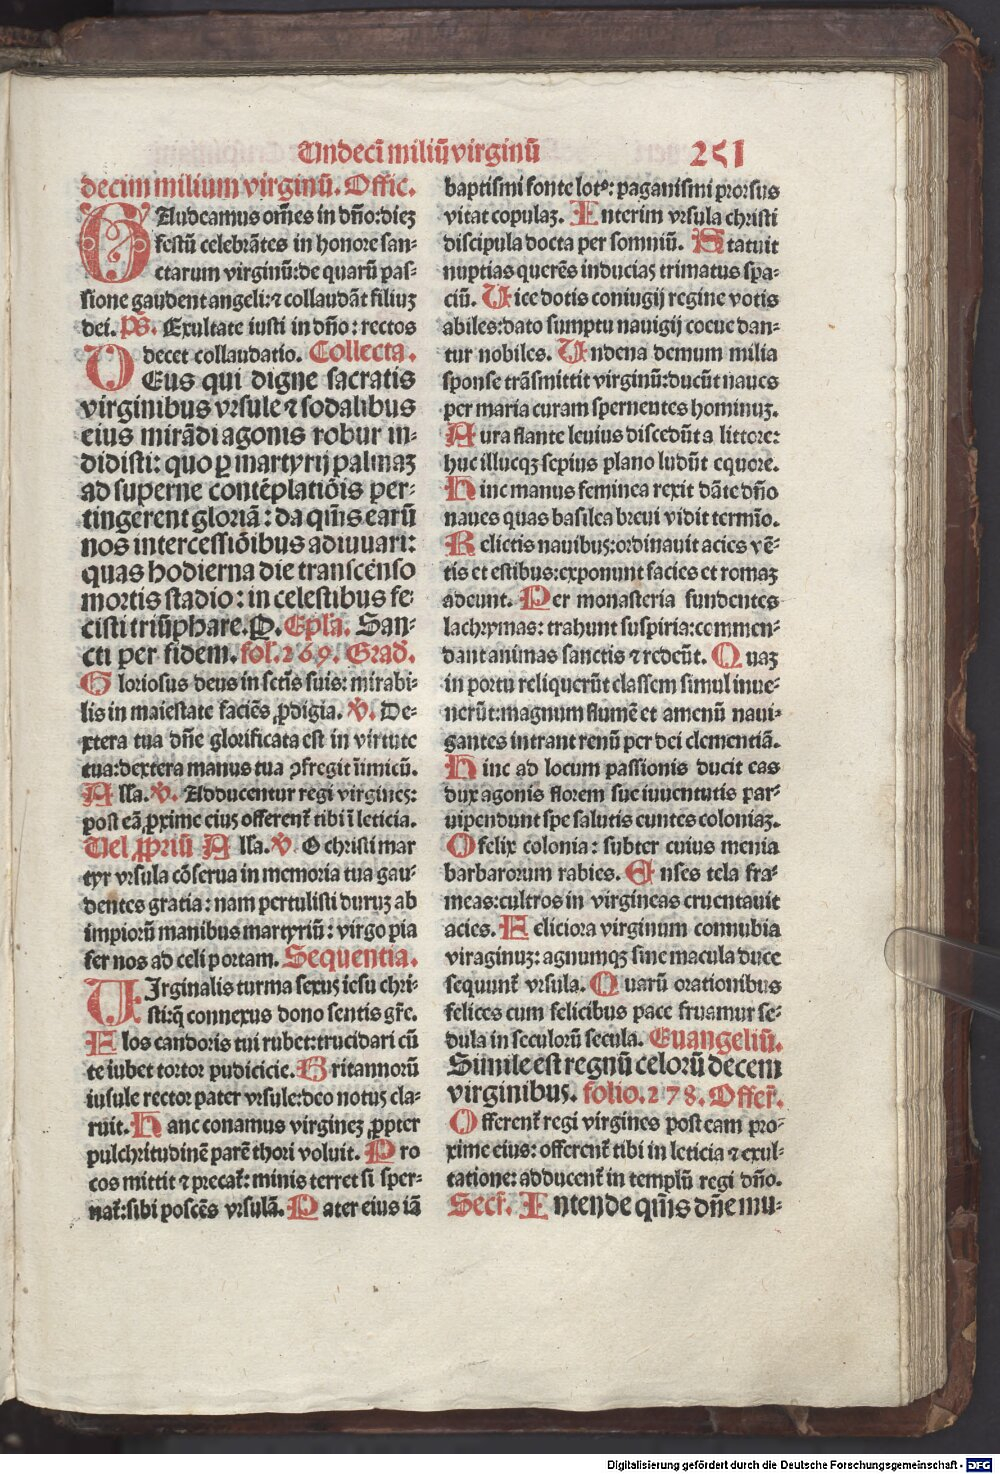 Undeci᷃ miliũ virginũ 251
decim milium virginũ. Offic.
GAudeamus om̃es in dño: diez
festũ celebrãtes in honore san-
ctarum virginũ: de quarũ pas-
sione gaudent angeli: ⁊ collaudãt filiuʒ
dei. ps̃. Exultate iusti in dño: rectos
decet collaudatio. Collecta.
DEus qui digne sacratis
virginibus vrsule ⁊ sodalibus
eius mirãdi agonis robur in-
didisti: quo ꝑ martyrij palmaʒ
ad superne contẽplatiõis per-
tingerent gloriã: da qm̃s earũ
nos intercessiõibus adiuuari:
quas hodierna die transcenso
mortis stadio: in celestibus fe-
cisti triũphare. P. Epl̃a. San-
cti per fidem. fol. 269. Grad̃.
Gloriosus deus in sctĩs suis: mirabi-
lis in maiestate faciẽs ꝓdigia. ℣. De-
xtera tua dñe glorificata est in virtute
tua: dextera manus tua ꝯfregit iĩmicũ.
Alla. ℣. Adducentur regi virgineʒ:
post eã ꝓxime eiuʒ offerent᷑ tibi ĩ leticia.
Uel ꝓpriũ Alla. ℣. O christi mar
tyr vrsula cõserua in memoria tua gau-
dentes gratia: nam pertulisti duruʒ ab
impiorũ manibus martyriũ: virgo pia
fer nos ad celi portam. Sequentia.
UIrginalis turma sexuʒ iesu chri-
sti: q̃ connexus dono sentis gr̃e.
Flos candoris tui rubet: trucidari cũ
te iubet tortor pudicicie. Britannorũ
iusule rector pater vrsule: deo notuʒ cla-
ruit. Hanc conamus virgineʒ ꝓpter
pulchritudinẽ parẽ thori voluit. Pro
cos mittit ⁊ precat᷑: minis terret si sper-
nat᷑: sibi poscẽs vrsulã. Pater eius iã
baptismi fonte lotꝰ: paganismi prorsus
vitat copulaʒ. Interim vrsula christi
discipula docta per somniũ. Statuit
nuptias querẽs induciaʒ trimatus spa-
ciũ. Uice dotis coniugij regine votis
abiles: dato sumptu nauigij cocue dan-
tur nobiles. Undena demum milia
sponse trãsmittit virginũ: ducũt naues
per maria curam spernentes hominuʒ.
Aura flante leuius discedũt a littore:
huc illucqʒ sepius plano ludũt equore.
Hinc manus feminea rexit dãte dño
naues quas basilea breui vidit termĩo.
Relictis nauibuʒ: ordinauit acies vẽ-
tis et estibus: exponunt facies et romaʒ
adeunt. Per monasteria fundentes
lachrymas: trahunt suspiria: commen-
dant animas sanctis ⁊ redeũt. Quaʒ
in portu reliquerũt classem simul inue-
nerũt: magnum flumẽ et amenũ naui-
gantes intrant renũ per dei clementiã.
Hinc ad locum passionis ducit eas
dux agonis florem sue iuuentutis par-
uipendunt spe salutis euntes coloniaʒ.
O felix colonia: subter cuius menia
barbarorum rabies. Enses tela fra-
meas: cultros in virgineas cruentauit
acies. Feliciora virginum connubia
viraginuʒ: agnumqʒ sine macula duce
sequunt᷑ vrsula. Quarũ orationibus
felices cum felicibus pace fruamur se-
dula in seculorũ secula. Euangeliũ.
Simile est regnũ celorũ decem
virginibuʒ. folio. 278. Offer̃.
Offerent᷑ regi virgines post eam pro-
xime eius: offerent᷑ tibi in leticia ⁊ exul-
tatione: adducent᷑ in templũ regi dño.
Secr̃. Intende qm̃s dñe mu-
Digitalisierung gefördert durch die Deutsche Forschungsgemeinschaft - DFG